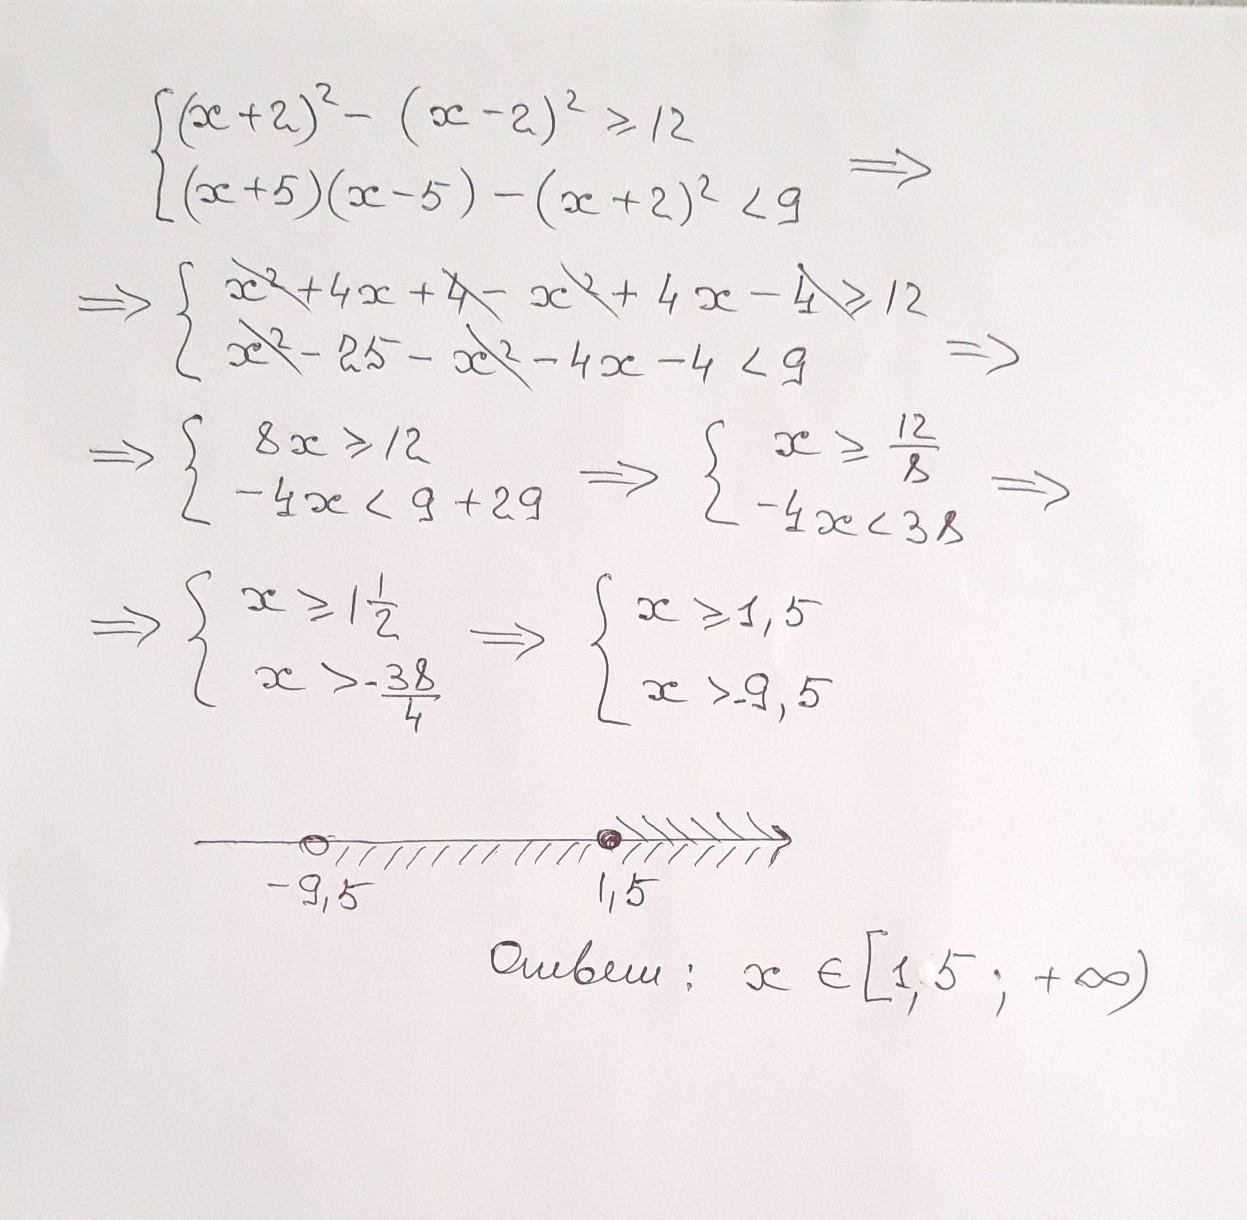 {(x+2)² - (x-2)² ≥ 12
(x+5)(x-5) - (x+2)² < 9 ⇒
⇒ {x² + 4x + 4 - x² + 4x - 4 ≥ 12
x² - 25 - x² - 4x - 4 < 9 ⇒
⇒ {8x ≥ 12 ⇒ {x ≥ 12/8
-4x < 9 + 29 -4x < 38 ⇒
⇒ {x ≥ 1 1/2 ⇒ {x ≥ 1,5
x > -38/4 x > -9,5
-9,5 1,5
Ответ: x ∈ [1,5; +∞)